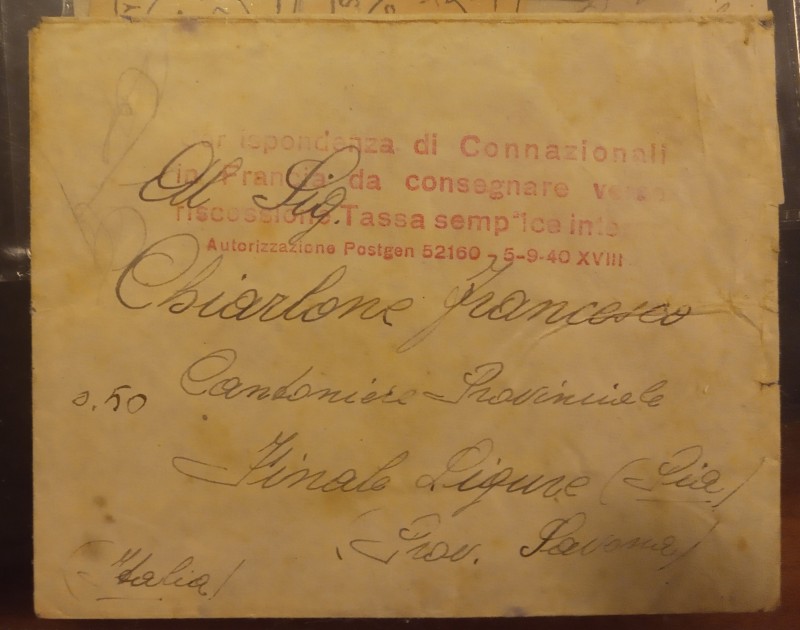 ispondenza di Connazionali
in Francia da consegnare verso
riscossione Tassa semplice inte
Autorizzazione Postgen 52160 - 5-9-40 XVIII
Al Sig.
Chiarlone Francesco
0.50 Cantoniere Provinciale
Finale Ligure (Pia)
(Prov. Savona)
(Italia)